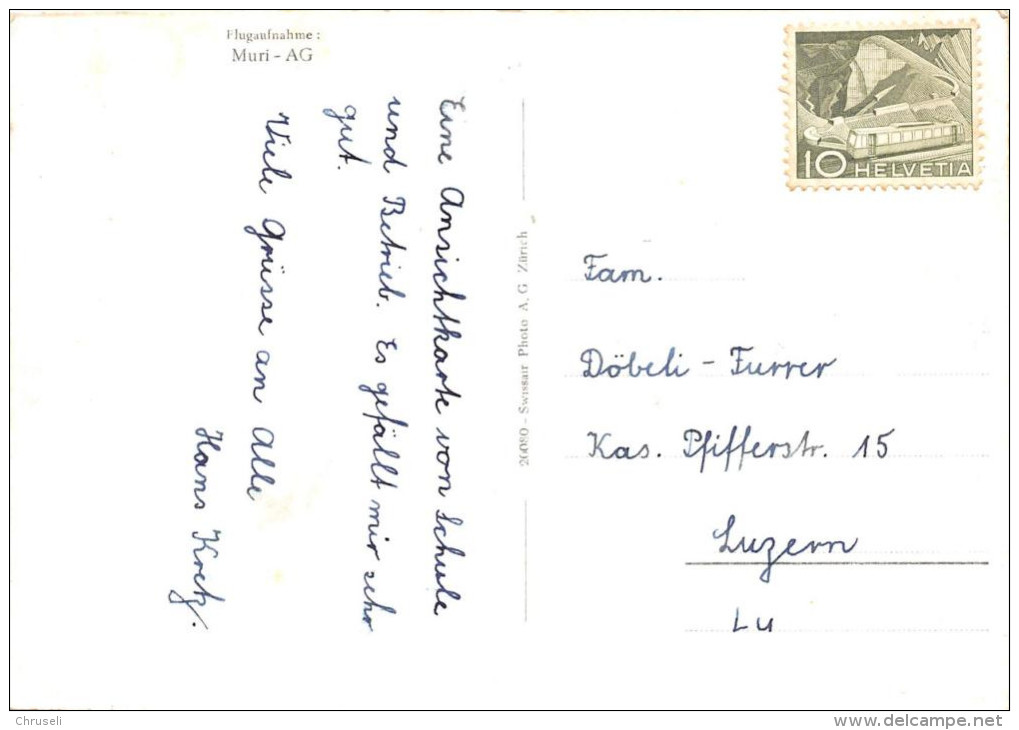 Flugaufnahme :
Muri - AG
Eine Ansichtkarte von Schule
und Betrieb. Es gefällt mir sehr
gut.
Viele Grüsse an Alle
Hans Kretz.
20080 - Swissair Photo A. G Zürich
10 HELVETIA
Fam.
Döbeli - Furrer
Kas. Pfifferstr. 15
Luzern
Lu
Chruseli
www.delcampe.net